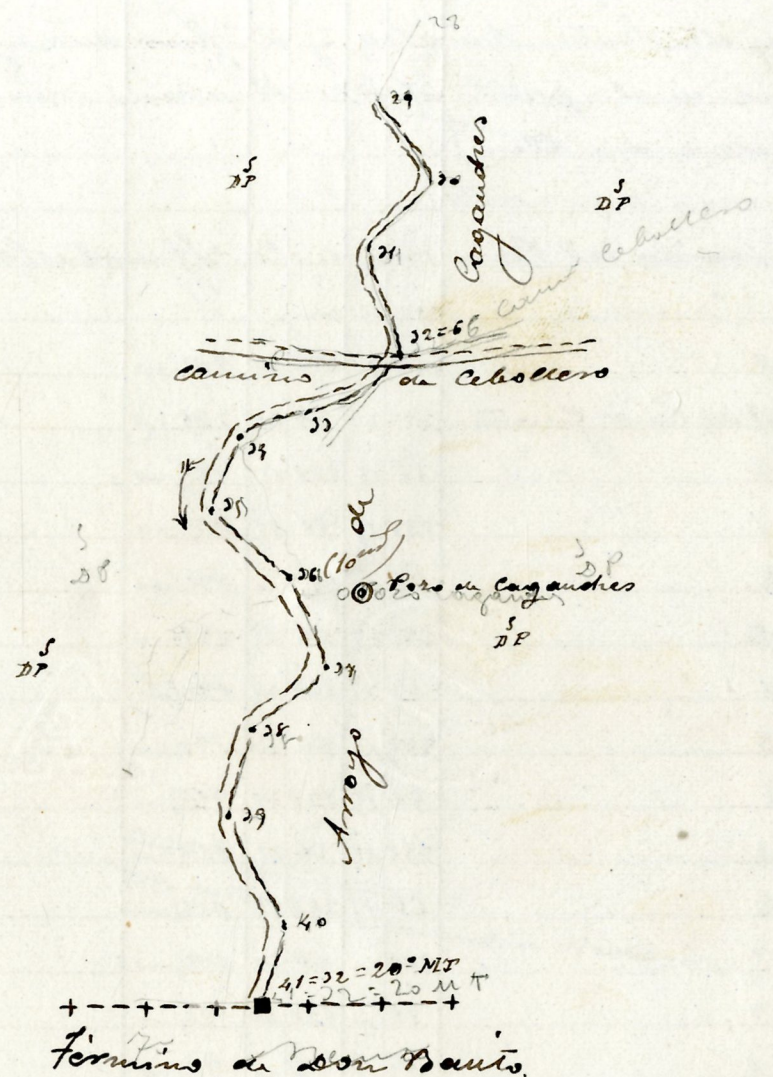 28
29
30
Cagandres
S
DP
S
DP
31
camino Cebollero
32=66
Camino de Cebollero
33
34
35
de
S
DP
36
(10 m)
S
DP
Pozo de Cagandres
S
DP
S
DP
37
38
Arroyo
39
40
41=32=20º MT
41=32=20 MT
Término de Don Benito